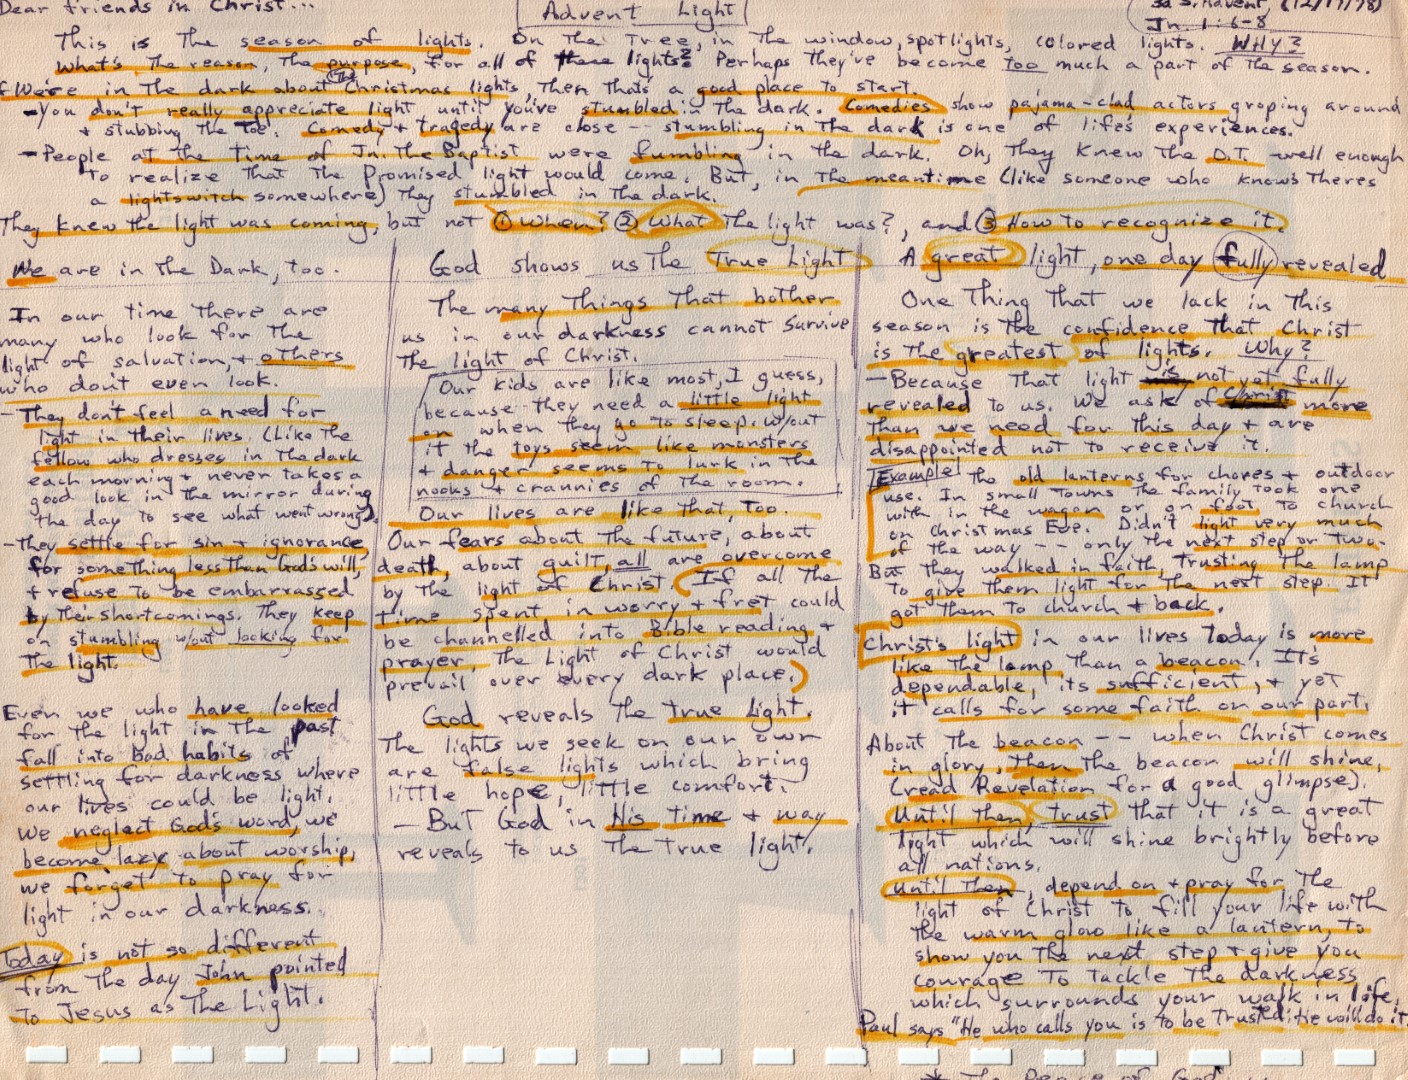 Dear friends in Christ...
Advent Light
3d S. Advent, (12/17/78)
Jn. 1:6-8
This is the season of lights. On the Tree, in the window, spotlights, colored lights. WHY?
What's the reason, the purpose, for all of these lights? Perhaps they've become too much a part of the season.
If We're in the dark about (the) Christmas lights, then that's a good place to start.
- You don't really appreciate light until you've stumbled in the dark. Comedies show pajama-clad actors groping around
+ stubbing the toe. Comedy + tragedy are close -- stumbling in the dark is one of life's experiences.
- People at the time of Jn. the Baptist were fumbling in the dark. Oh, they knew the O.T. well enough
to realize that the Promised light would come. But, in the meantime (like someone who knows theres
a lightswitch somewhere) they stumbled in the dark.
They knew the light was coming, but not ① When? ② What the light was?, and ③ How to recognize it.
We are in the Dark, too.
In our time there are
many who look for the
light of salvation, + others
who don't even look.
- They don't feel a need for
light in their lives. (Like the
fellow who dresses in the dark
each morning + never takes a
good look in the mirror during
the day to see what went wrong).
- They settle for sin + ignorance,
for something less than God's will,
+ refuse to be embarrassed
by their shortcomings. They keep
on stumbling w/out looking for
the light.
Even we who have looked
for the light in the past
fall into bad habits of
settling for darkness where
our lives could be light.
We neglect God's word, we
become lazy about worship,
we forget to pray for
light in our darkness.
Today is not so different
from the day John pointed
to Jesus as the Light.
God shows us the True Light
The many things that bother
us in our darkness cannot survive
the light of Christ.
Our kids are like most, I guess,
because they need a little light
on when they go to sleep. w/out
it the toys seem like monsters
+ danger seems to lurk in the
nooks + crannies of the room.
Our lives are like that, too.
Our fears about the future, about
death, about guilt, all are overcome
by the light of Christ (If all the
time spent in worry + fret could
be channelled into Bible reading +
prayer, the Light of Christ would
prevail over every dark place.)
God reveals the true light.
The lights we seek on our own
are false lights which bring
little hope, little comfort.
- But God in His time + way
reveals to us the true light.
A great light, one day fully revealed
One thing that we lack in this
season is the confidence that Christ
is the greatest of lights. Why?
- Because that light is not yet fully
revealed to us. We ask of Christ more
than we need for this day + are
disappointed not to receive it.
Example! The old lanterns for chores + outdoor
use. In small towns the family took one
with in the wagon or on foot to church
on Christmas Eve. Didn't light very much
of the way -- only the next step or two.
But they walked in faith, trusting the lamp
to give them light for the next step. It
got them to church + back.
Christ's light in our lives today is more
like the lamp than a beacon. It's
dependable, its sufficient, + yet
it calls for some faith on our part.
About the beacon -- when Christ comes
in glory, then the beacon will shine,
(read Revelation for a good glimpse).
Until then, trust that it is a great
light which will shine brightly before
all nations.
Until then, depend on + pray for the
light of Christ to fill your life with
the warm glow like a lantern, to
show you the next step + give you
courage to tackle the darkness
which surrounds your walk in life.
Paul says "He who calls you is to be trusted; He will do it.
* The Peace of God...